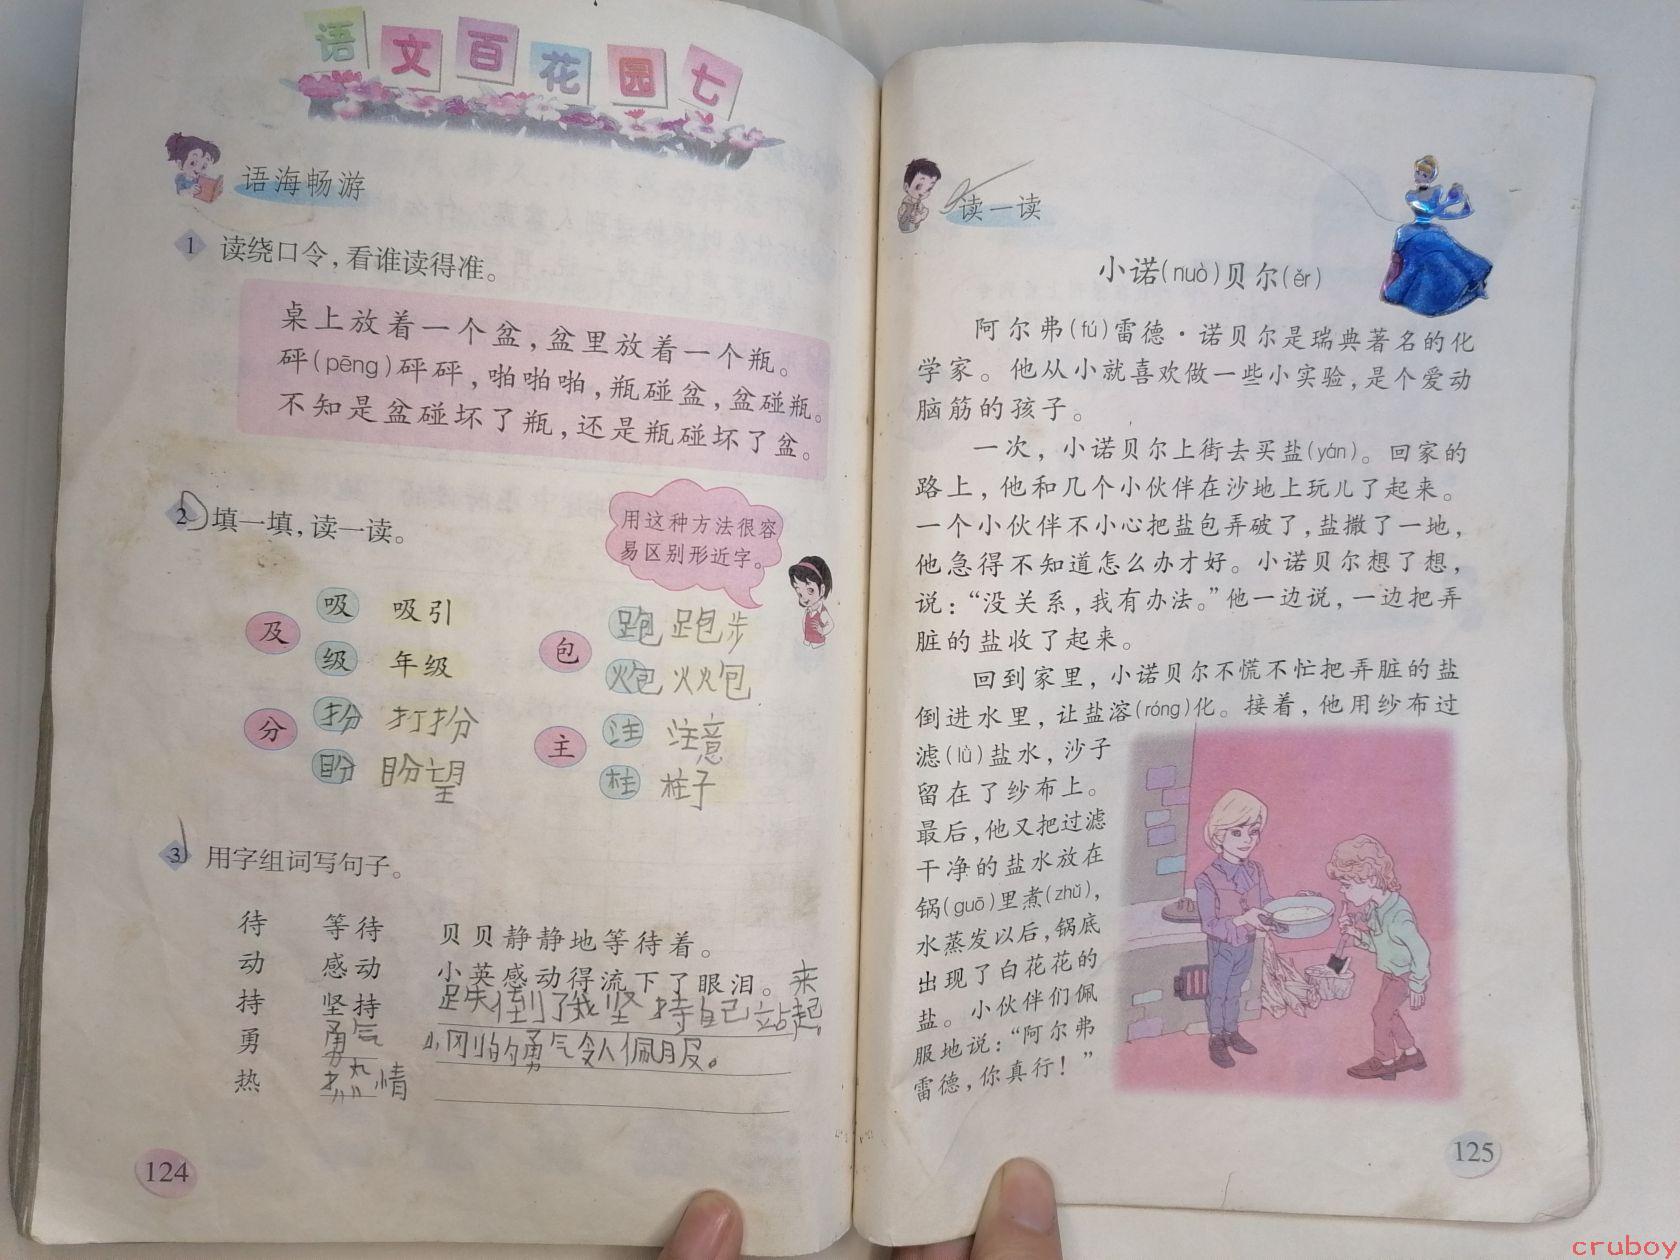 语文百花园七
语海畅游
1 读绕口令，看谁读得准。
桌上放着一个盆，盆里放着一个瓶。
砰(pēng)砰砰，啪啪啪，瓶碰盆，盆碰瓶。
不知是盆碰坏了瓶，还是瓶碰坏了盆。
2 填一填，读一读。
用这种方法很容
易区别形近字。
及 吸 吸引
级 年级
包 跑 跑步
炮 火炮
分 扮 打扮
盼 盼望
主 注 注意
柱 柱子
3 用字组词写句子。
待 等待 贝贝静静地等待着。
动 感动 小英感动得流下了眼泪。
持 坚持 跌倒了我坚持自己站起来，
勇 勇气 小刚的勇气令人佩服。
热 热情
124
读一读
小诺(nuò)贝尔(ěr)
阿尔弗(fú)雷德·诺贝尔是瑞典著名的化
学家。他从小就喜欢做一些小实验，是个爱动
脑筋的孩子。
一次，小诺贝尔上街去买盐(yán)。回家的
路上，他和几个小伙伴在沙地上玩儿了起来。
一个小伙伴不小心把盐包弄破了，盐撒了一地，
他急得不知道怎么办才好。小诺贝尔想了想，
说：“没关系，我有办法。”他一边说，一边把弄
脏的盐收了起来。
回到家里，小诺贝尔不慌不忙把弄脏的盐
倒进水里，让盐溶(róng)化。接着，他用纱布过
滤(lǜ)盐水，沙子
留在了纱布上。
最后，他又把过滤
干净的盐水放在
锅(guō)里煮(zhǔ)，
水蒸发以后，锅底
出现了白花花的
盐。小伙伴们佩
服地说：“阿尔弗
雷德，你真行！”
125
cruboy